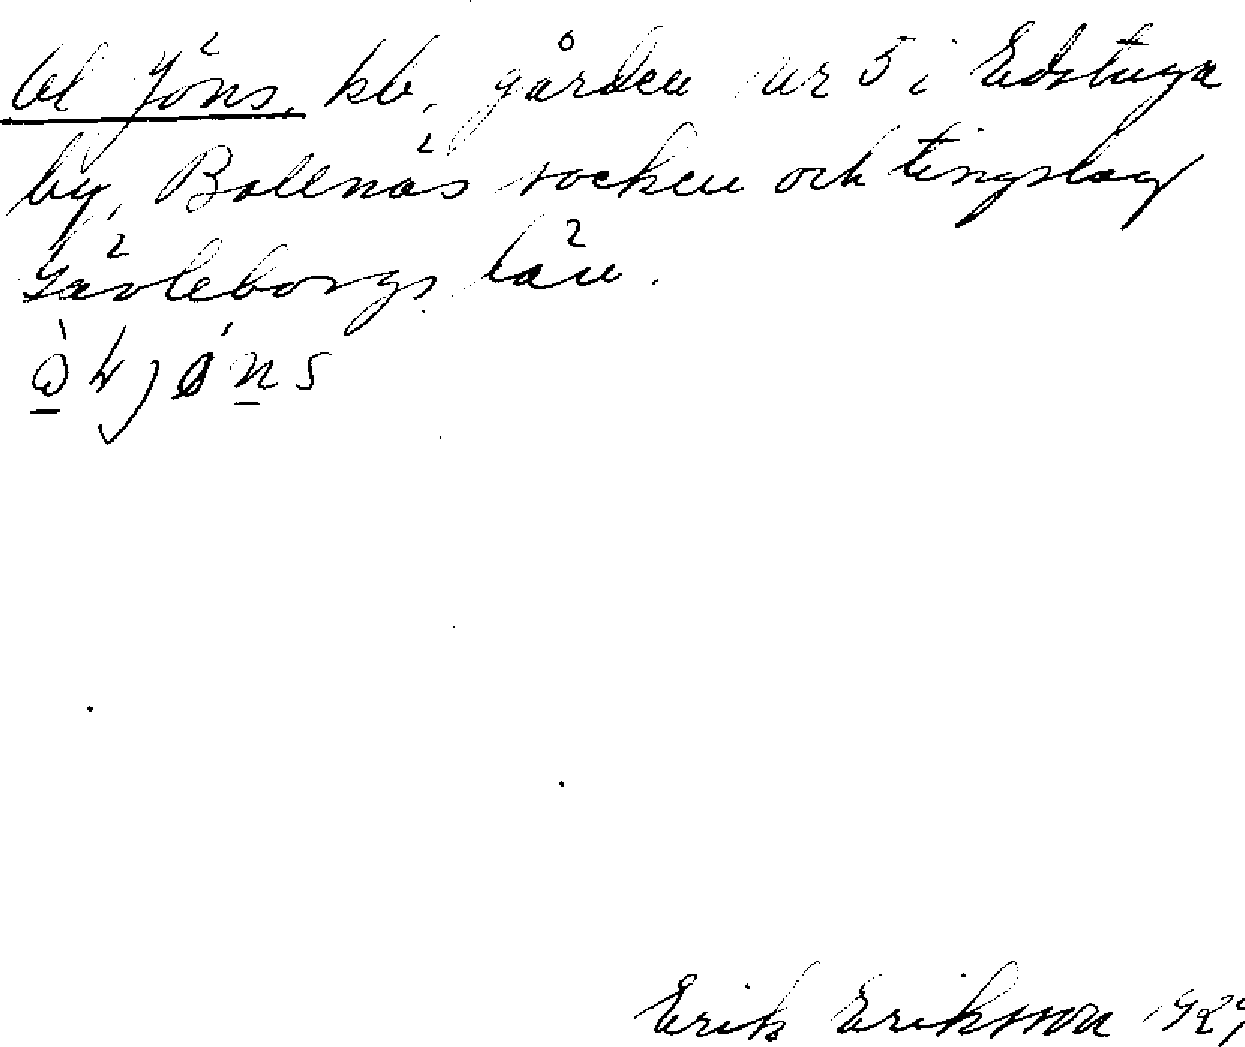 Ol Jöns, kb, gården nr 5 i Edstuga
by, Bollnäs socken och tingslag
Gävleborgs län.
Erik Eriksson 1927